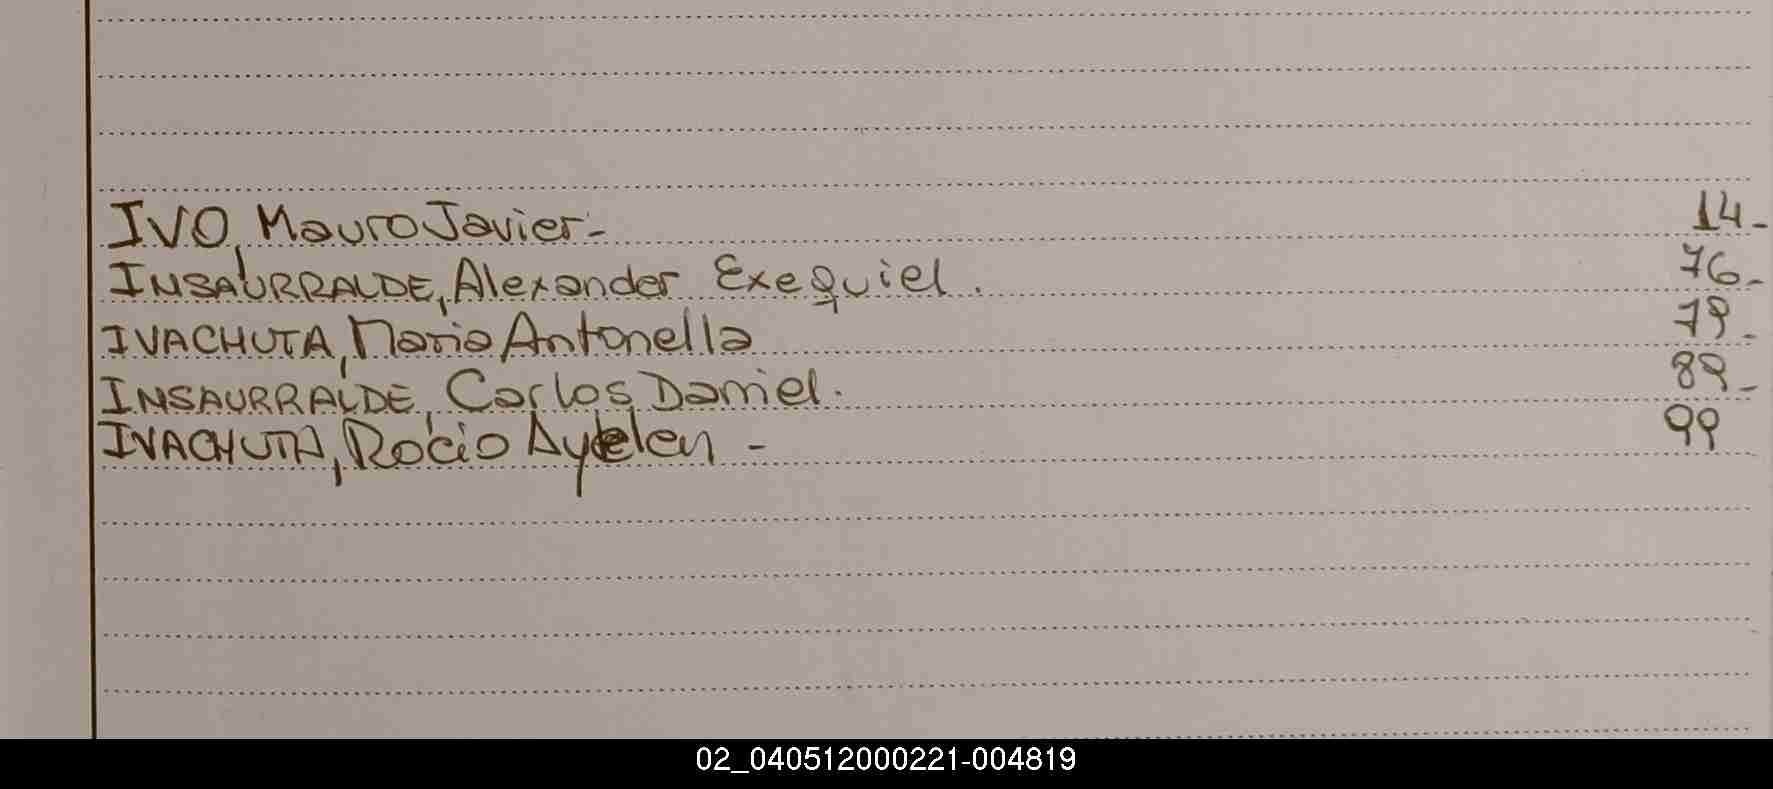 IVO, Mauro Javier.- 14.-
INSAURRALDE, Alexander Exequiel. 76.-
IVACHUTA, Maria Antonella 79.-
INSAURRALDE, Carlos Daniel. 89.-
IVACHUTA, Rocio Ayelen - 99
02_040512000221-004819